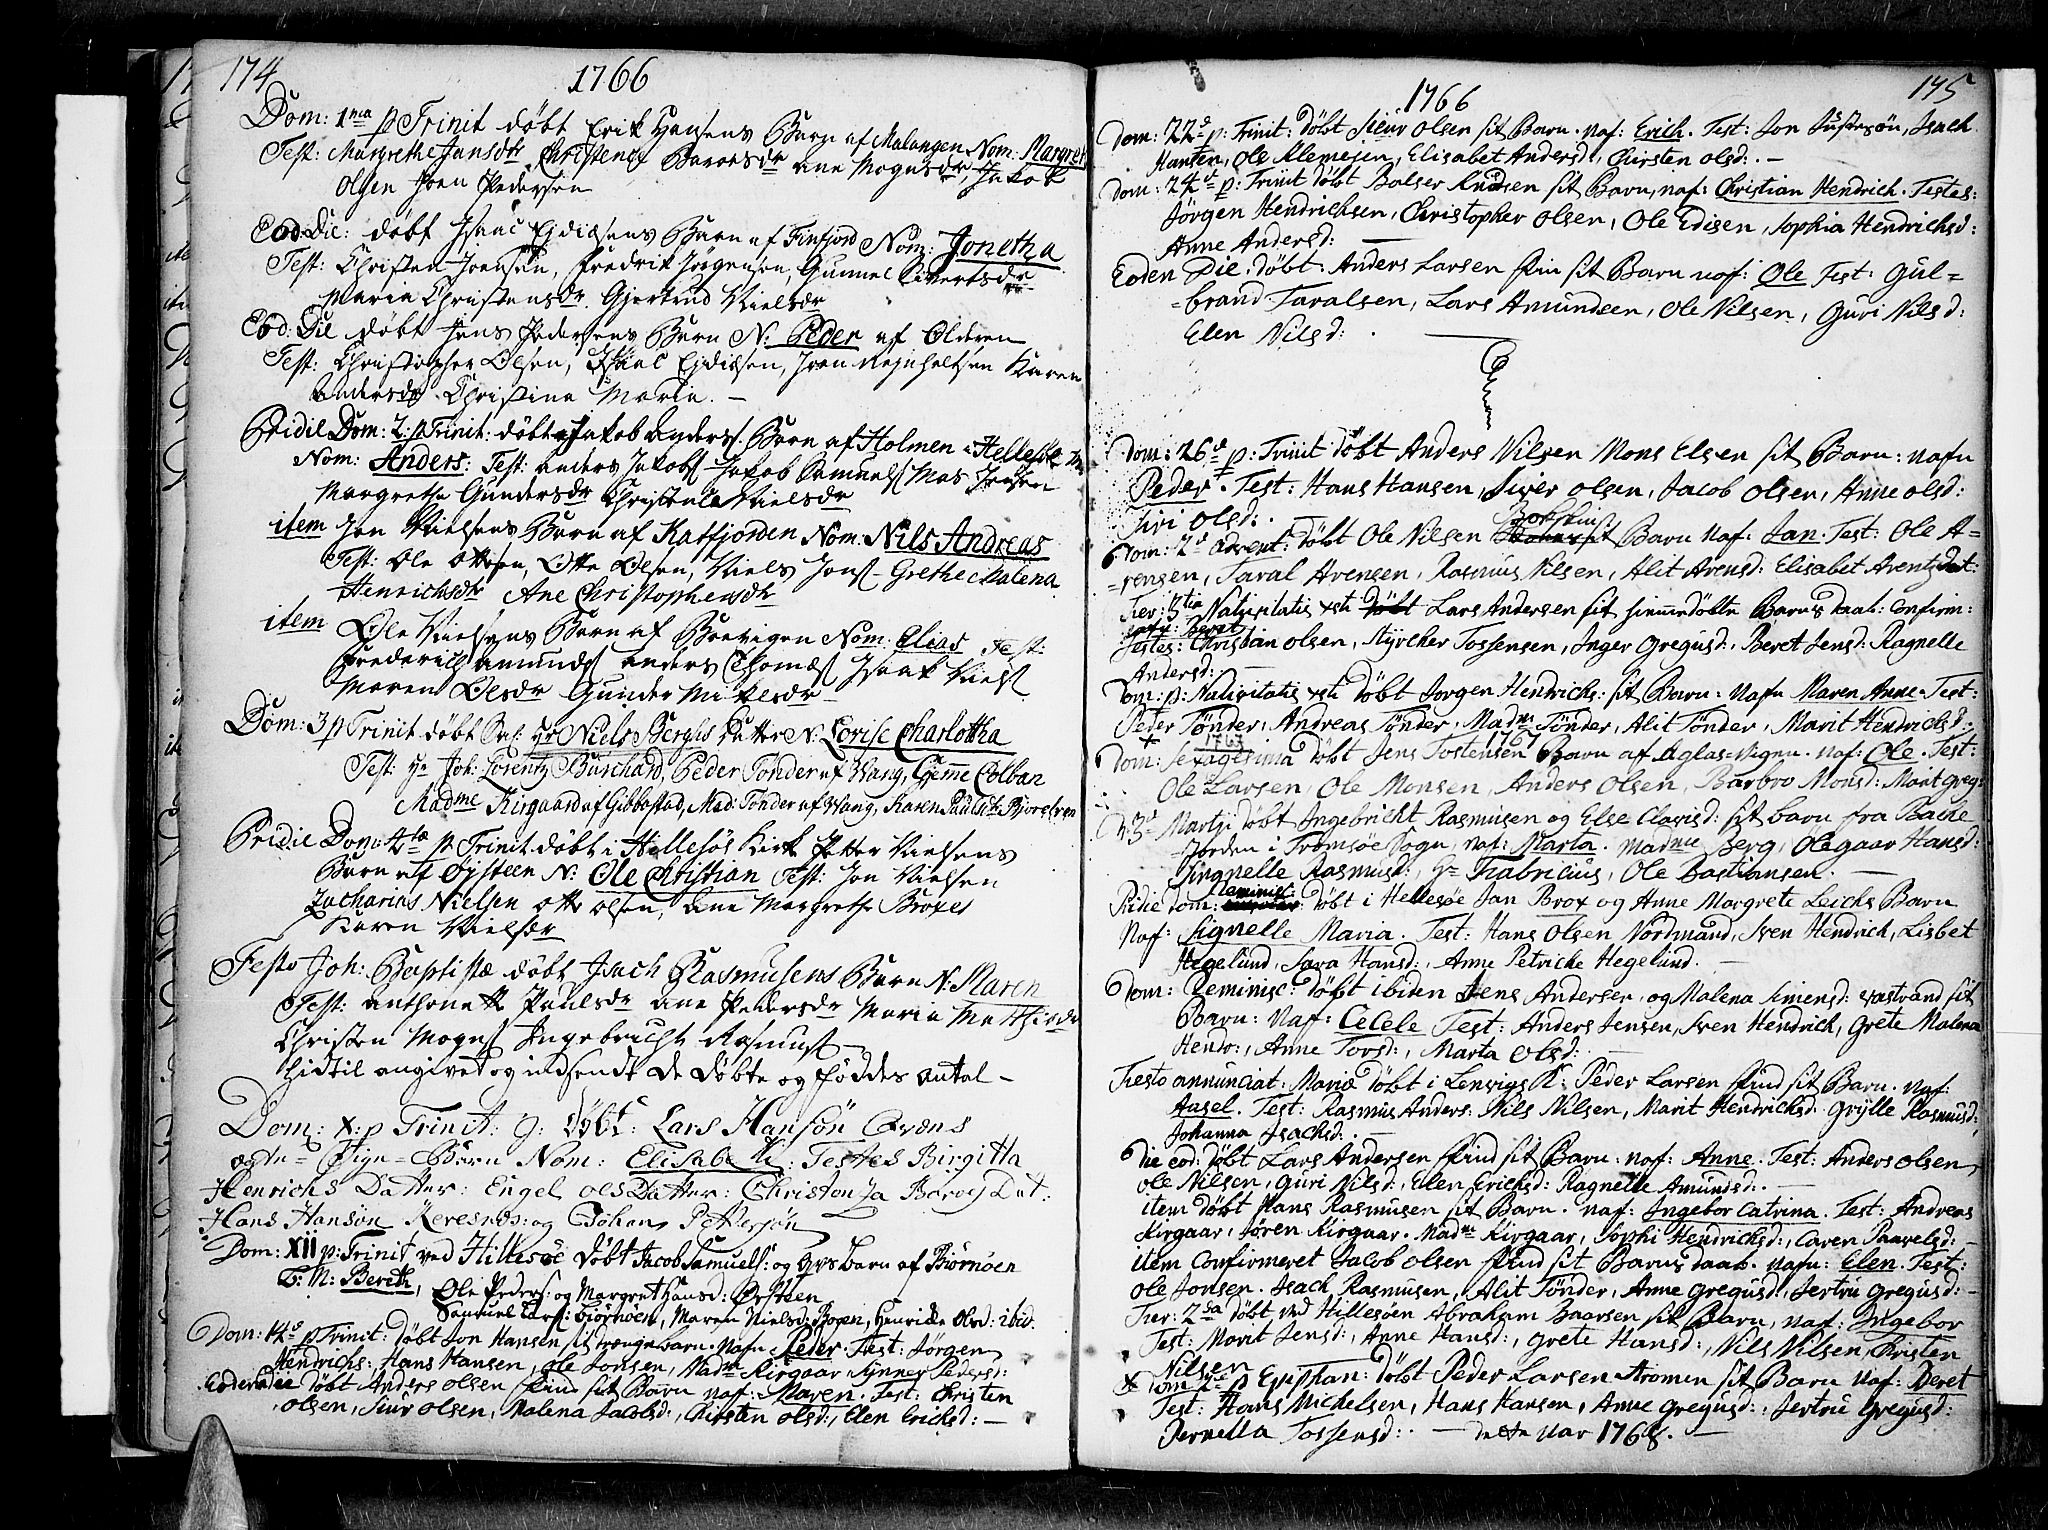 174
1766
Dom: 1ma p Trinit döbt Erik Hansens Barn af Malangen Nom: Margret
Test: Margrethe Jansdr Christense Barensdr Ane Mognsdr, Jakob
Olsen Joen Pedersen
Eod. Die: döbt Isaac Ejdissens Barn af Finfjord Nom: Jonetha
Test: Christen Joensen, Fredrik Jörgensen, Gunnel Evertsdr
Maria Christensdr Gjertrud Nielsdr
Eod: Die döbt Jens Pedersens Barn N: Peder af Olderen
Test: Christopher Olsen, Isaac Ejdissen, Joen Rejnholtsen Karen
Andersdr Christina Maria. –
Pridie Dom: 2 p Trinit: döbt Jakob Anders: Barn af Holmen i Hellesöe
Nom: Anders: Test: Anders Jakobs Jakob Samuels Mas Jensen
Margrethe Gundersdr Christense Nielsdr
item Jon Nielsens Barn af Katfjorden Nom: Nils Andreas
Test: Ole Ottesen, Otte Olsen, Niels Jons – Grethe Malena
Henrichsdr Ane Christophersdr
item Ole Nielsens Barn af Bredvigen Nom: Elias Test:
Frederich Amunds Anders Thomæs Isaak Niels
Maren Olsdr Gunder Mikelsdr
Dom: 3 p Trinit döbt Sr: Niels Berghs Datter N: Lovise Charlotha
Test: Hr Joh: Lorentz Burchard, Peder Tönder af Wang, Tjeme Colban
Madme Kirgaard af Gibbostad, Mad: Tönder af Wang, Karen
Pridie Dom: 4tæ p Trinit döbt i Hellesöe Kirk Petter Nielsens
Barn af Öjsteen N: Ole Christian Test: Jon Nielsen
Zacharias Nielsen Otte Olsen, Ane Margrethe Broxes
Karen Nielsdr
Festo Joh: Baptistæ döbt Isach Rasmusens Barn N: Maren
Test: Anthonette Paulsdr Ane Pedersdr Maria Mathiædr
Christen Mogns Ingebricht Rasmus
Hidtil angivet og indsendt de döbte og föddes Antal –
Dom: X: p Trinit: döbt: Lars Hansön
ægte Barn Nom: Elisabeth: Testes Birgitta
Henrichs Datter: Engel Ols Datter: Baroes Dat:
Hans Hansön og Johan Pettersön
Dom: XII p: Trinit ved Hillesöe döbt Jacob Samuels: og Barn af Biörnöen
N: Bereth, Ole Peders: og Margret Hansd: Öisteen
Samuel Lars: Biörnöen, Maren Nielsd: Bogen, Henriche Olsd: ibid.
Dom: 14d p Trinit: döbt Jon Hansen sit Barn. Nafn Peder Test: Jörgen
Hendrichs:, Hans Hansen, Ole Jonsen, Madme Kirgaar Synner Pedersd:
Eodem die döbt Anders Olsen Find sit Barn naf: Maren. Test: Christen
Olsen, Siur Olsen, Malena Jacobsd:, Chirsten Olsd:, Elen Erichsd: –
175
1766
Dom: 22d p: Trinit: döbt Siur Olsen sit Barn. naf: Erich. Test: Jon Justesön, Isach
Hansen, Ole Klemejen, Elisabet Andersd:, Chirsten Olsd: –
Dom: 24d p: Trinit döbt Balser Knudsen sit Barn, naf: Christian Hendrich. Testes:
Jörgen Hendrichsen, Christopher Olsen, Ole Edisen, Sophia Hendrichsd:
Anne Andersd:
Eoden Die. döbt. Anders Larsen Fin sit Barn naf: Ole Test: Gul=
=brand Taralsen, Lars Amundsen, Ole Nilsen, Guri Nilsd:
Elen Nilsd:
Dom: 26d p: Trinit döbt Anders Nilsen Mons Elsen sit Barn: nafn
Peder. Test: Hans Hansen, Siver Olsen, Jacob Olsen, Anne Olsd:
Siri Olsd:
Dom: 2d Advent: döbt Ole Nilsen sit Barn Naf: Jan. Test: Ole A=
=rensen, Taral Arensen, Rasmus Nilsen, Alit Arensd: Elisabet Arentzdat:
Fer: 3tia Nativitatis xsti Lars Andersen sit hiemedöbte Barns daab: Confirm:
Testes: Christian Olsen, Styrcher Tossensen, Inger Gregusd:, Beret Jensd: Ragnelle
Andersd:
Dom: p: Nativitatis xsti döbt Jorgen Hendrichs: sit Barn: Nafn Maren Anne. Test:
Peder Tönder, Andreas Tönder, Madme Tönder, Alit Tönder, Marit Hendrichsd:
1767
Dom: Sexagesima döbt Jens Tostensen Barn af Aglas=Vign. naf: Ole. Test:
Ole Larsen, Ole Monsen, Anders Olsen, Barbro Monsd: Marit Greg:
D: 3d Martji döbt Ingebricht Rasmusen og Else Clavisd: sit barn fra Bache
=Jorden i Tromsöe Sogn, naf: Marta. Madme Berg, Olegaar Hansd:
Jingnelle Rasmusd:, Hr Fabricius, Ole Bastiansen. –
Pridie Dom: Reminisc: döbt i Hellesöe Jan Brox og Anne Margrete Leichs Barn
Naf: Signelle Maria. Test: Hans Olsen Nordmand, Sven Hendrich, Lisbet
Hegelund, Sara Hansd:, Anne Petriche Hegelund.
Dom: Reminisc: döbt ibiden Jens Andersen, og Malena Simensd: Vastrand sit
Barn: Naf: CeCele Test: Anders Jensen, Sven Hendrich, Grete Malena
Hendr:, Anne Torsd:, Marta Olsd:
Festo annunciat: Mariæ döbt i Lenvigs K: Peder Larsen Find sit Barn. Naf:
Aasel. Test: Rasmus Anders. Nils Nilsen, Marit Hendrichsd. Grylle Rasmusd:,
Johanna Isachsd:
Die eod: döbt Lars Andersen Find sit Barn: naf: Anne. Test: Anders Olsen,
Ole Nilsen, Guri Nilsd:, Elen Erichsd: Ragnelle Amundsd: –
item döbt Hans Rasmusen sit Barn. naf: Ingebor Catrina. Test: Andreas
Kirgaar, Sören Kirgaar. Madme Kirgaar, Sophi Hendrichsd:, Caren Paavelsd: –
item Confirmeret Jacob Olsen Find sit Barns daab. nafn: Elen. Test:
Ole Jonsen. Isach Rasmusen, Alit Tönder, Anne Gregusd:, Jertru Gregusd: –
Fer: 2da döbt ved Hillesöen Abraham Baarsen sit Barn, naf: Ingebor
Test: Marit Jensd:, Anne Hansd:, Grete Hansd:, Nils Nilsen, Christen
Nilsen
x Dom 2de p Epiphan: döbt Peder Larsen Strömen sit Barn Naf: Beret
Test: Hans Michelsen, Hans Hansen, Anne Gregusd:, Jertru Gregusd:
Pernella Tossensd: – dette var 1768.